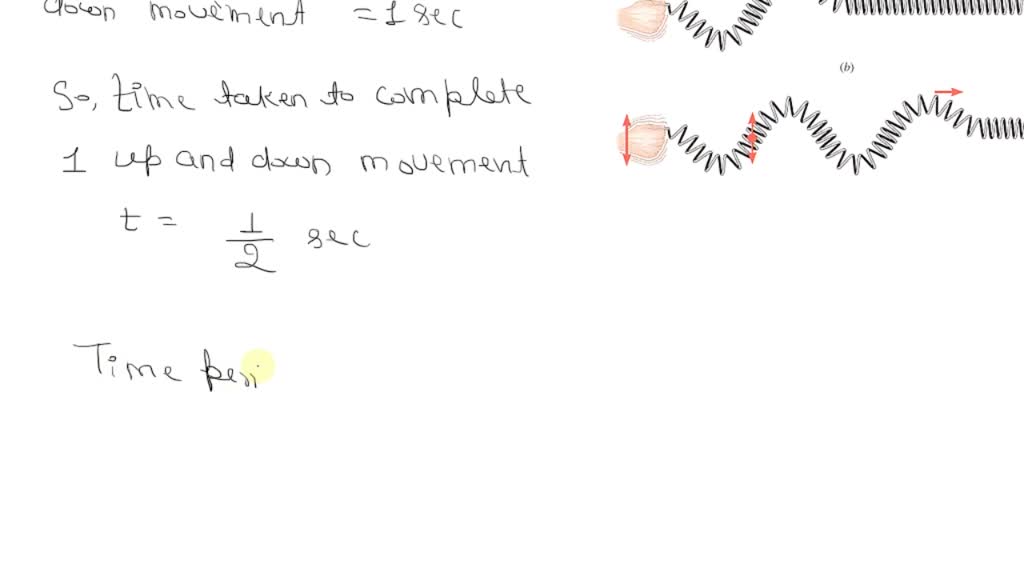 down movement = 1 sec
(b)
So, time taken to complete
1 up and down movement
t = 1/2 sec
Time peri